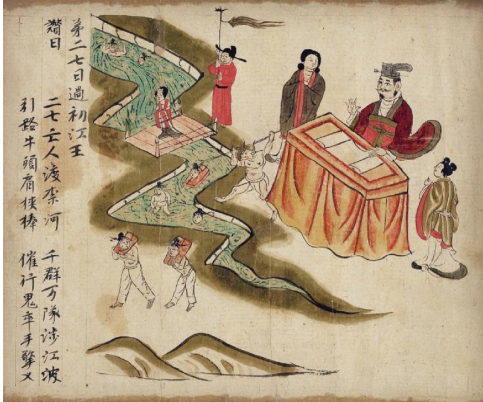 第二七日過初江王
讚曰 二七亡人渡奈河 千群万隊涉江波
引路牛頭肩俠棒 催行鬼卒手擎叉